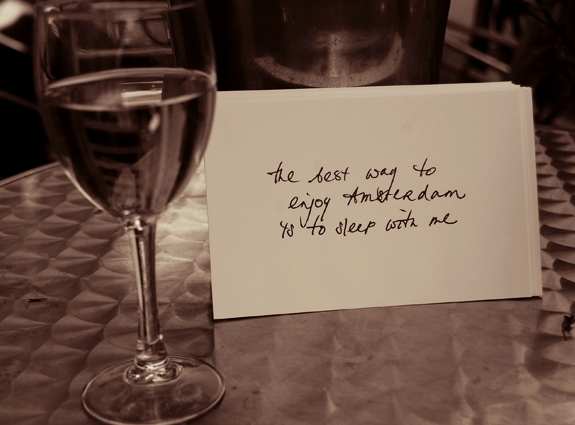 the best way to
enjoy Amsterdam
is to sleep with me